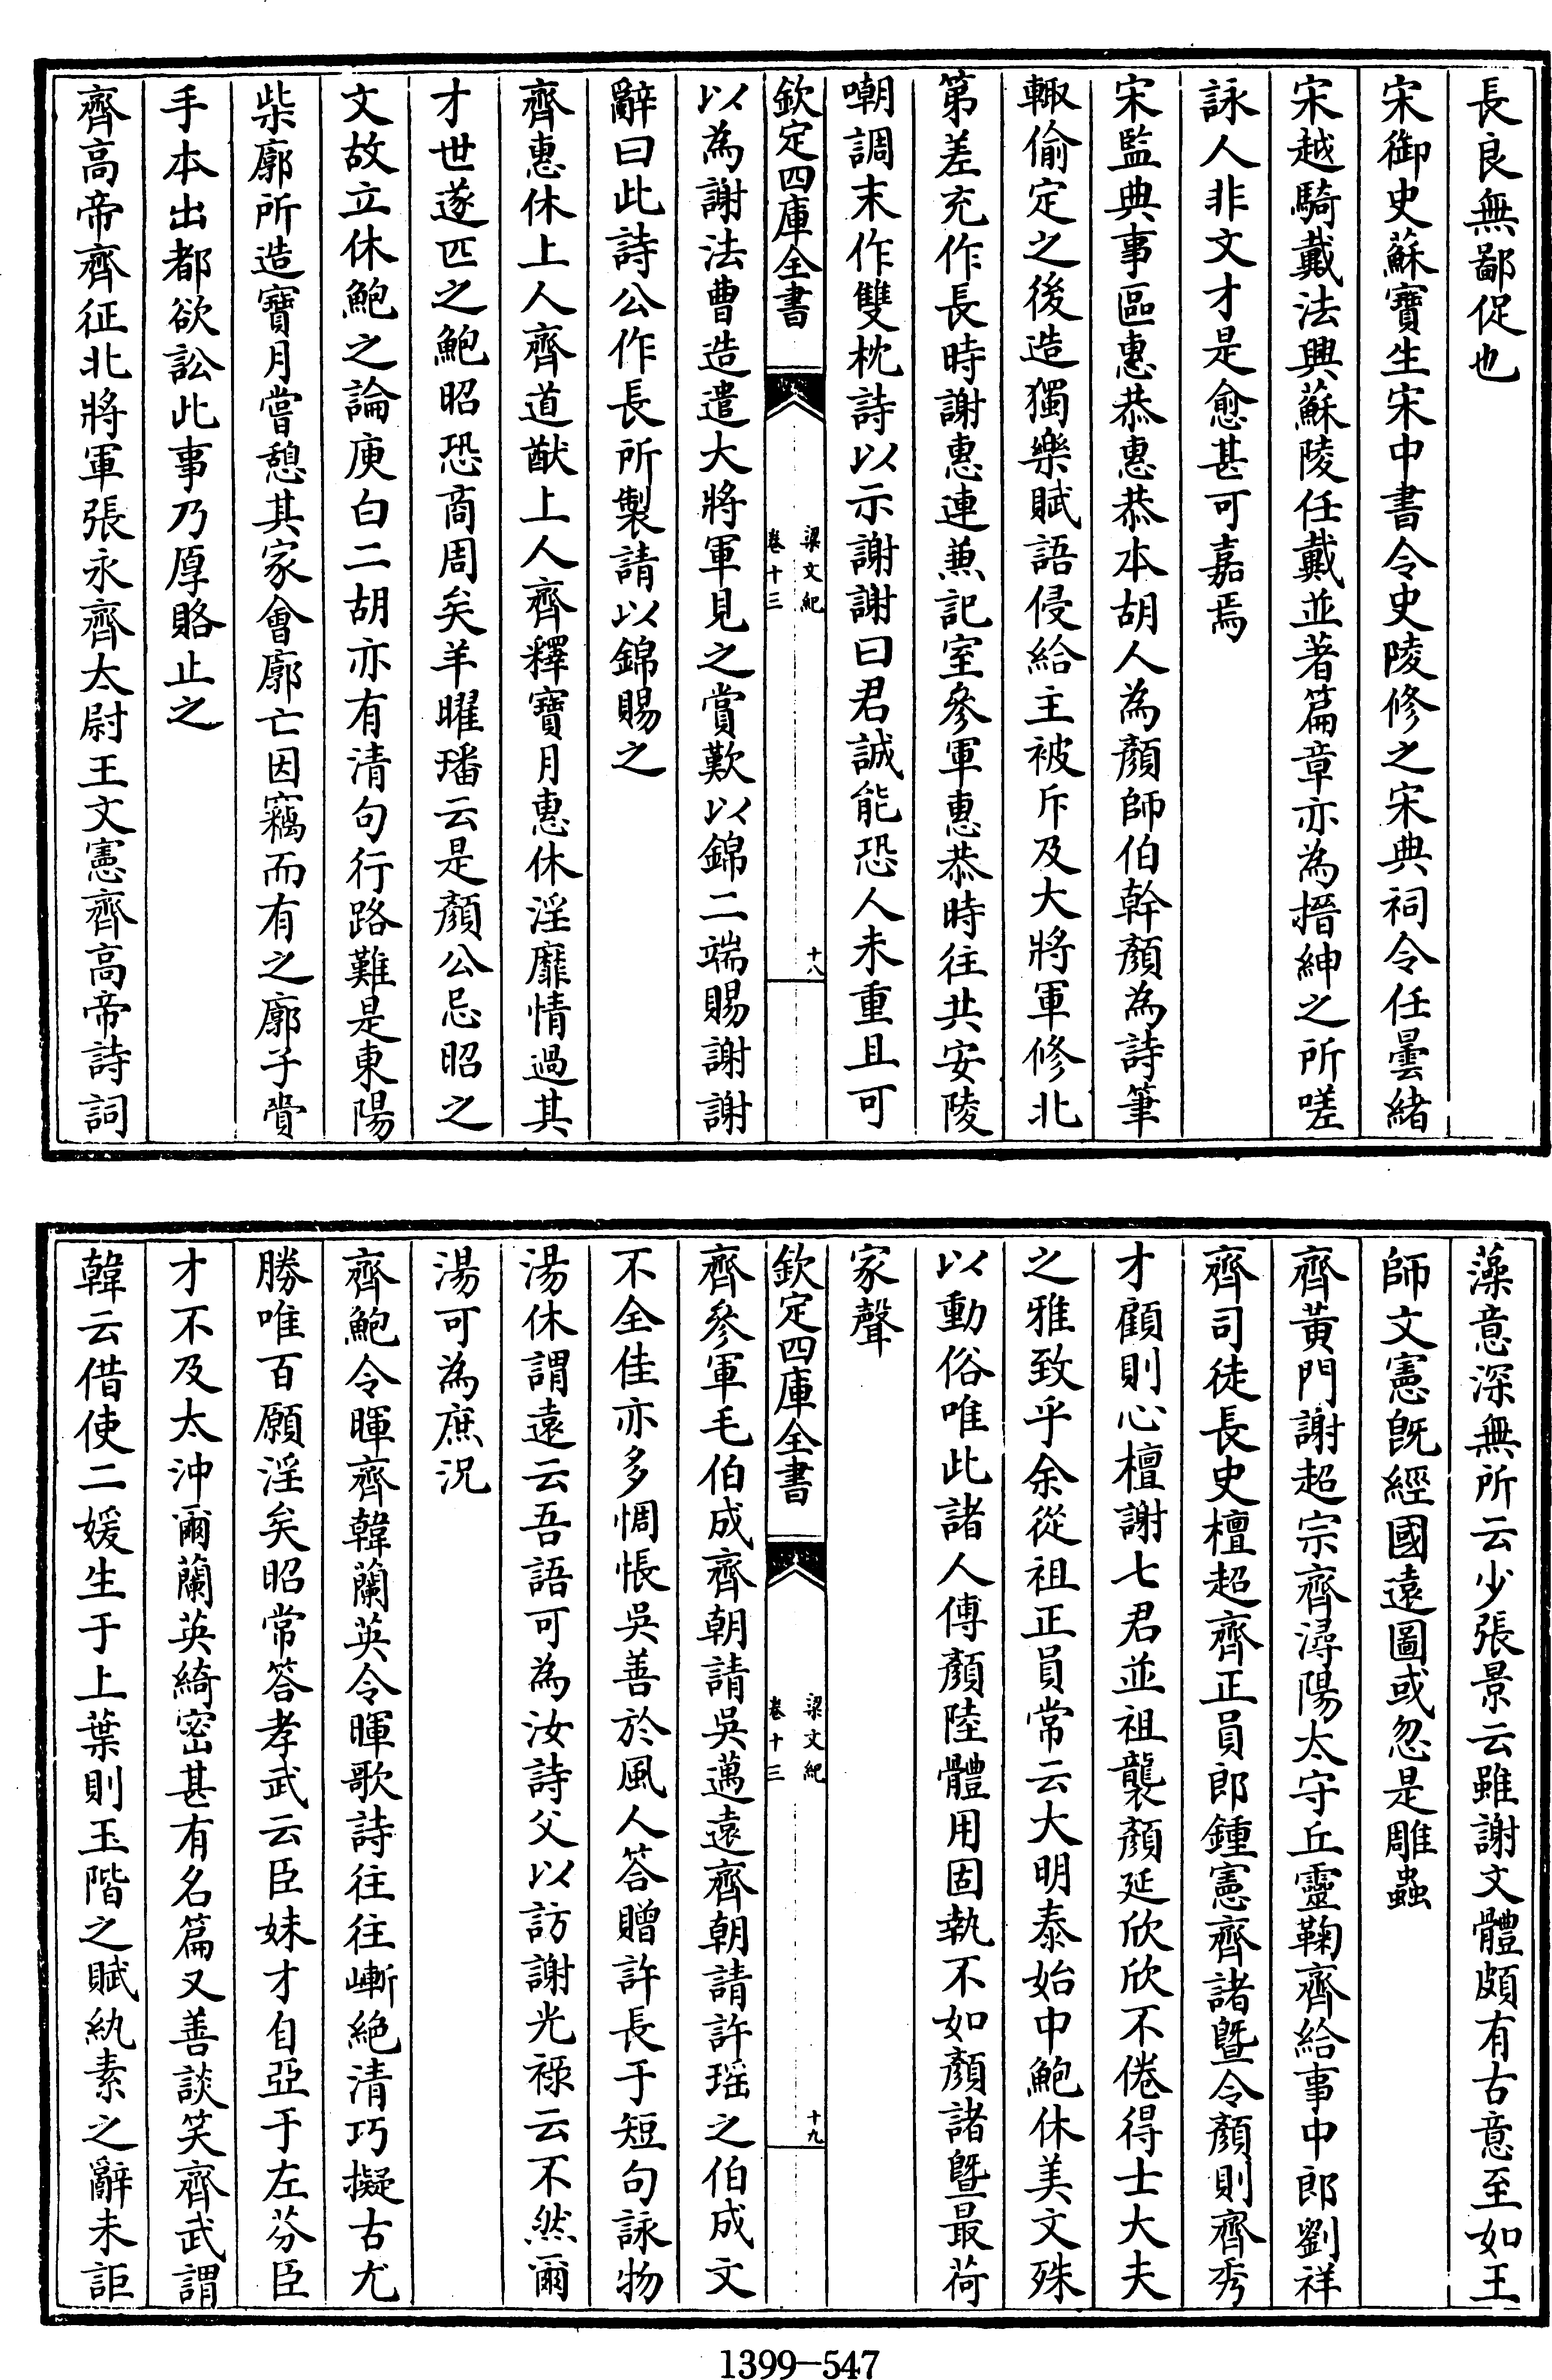 長良無鄙促也
宋御史蘇寶生宋中書令史陵修之宋典祠令任曇緒
宋越騎戴法興蘇陵任戴並著篇章亦為搢紳之所嗟
詠人非文才是愈甚可嘉焉
宋監典事區惠恭惠恭本胡人為顏師伯幹顏為詩筆
輙偷定之後造獨樂賦語侵給主被斥及大將軍修北
第差充作長時謝惠連兼記室參軍惠恭時往共安陵
嘲調末作雙枕詩以示謝謝曰君誠能恐人未重且可
欽定四庫全書
梁文紀
卷十三
十八
以為謝法曹造遣大將軍見之賞歎以錦二端賜謝謝
辭曰此詩公作長所製請以錦賜之
齊惠休上人齊道猷上人齊釋寶月惠休淫靡情過其
才世遂匹之鮑昭恐商周矣羊曜璠云是顏公忌昭之
文故立休鮑之論庾白二胡亦有清句行路難是東陽
柴廓所造寶月嘗憩其家會廓亡因竊而有之廓子賫
手本出都欲訟此事乃厚賂止之
齊高帝齊征北將軍張永齊太尉王文憲齊高帝詩詞
藻意深無所云少張景云雖謝文體頗有古意至如王
師文憲旣經國遠圖或忽是雕蟲
齊黃門謝超宗齊潯陽太守丘靈鞠齊給事中郎劉祥
齊司徒長史檀超齊正員郎鍾憲齊諸暨令顏則齊秀
才顧則心檀謝七君並祖襲顏延欣欣不倦得士大夫
之雅致乎余從祖正員常云大明泰始中鮑休美文殊
以動俗唯此諸人傅顏陸體用固執不如顏諸暨最荷
家聲
欽定四庫全書
梁文紀
卷十三
十九
齊參軍毛伯成齊朝請吳邁遠齊朝請許瑶之伯成文
不全佳亦多惆悵吳善於風人答贈許長于短句詠物
湯休謂遠云吾語可為汝詩父以訪謝光祿云不然爾
湯可為庶況
齊鮑令暉齊韓蘭英令暉歌詩往往嶄絕清巧擬古尤
勝唯百願淫矣昭常答孝武云臣妹才自亞于左芬臣
才不及太沖爾蘭英綺密甚有名篇又善談笑齊武謂
韓云借使二媛生于上葉則玉階之賦紈素之辭未詎
1399-547